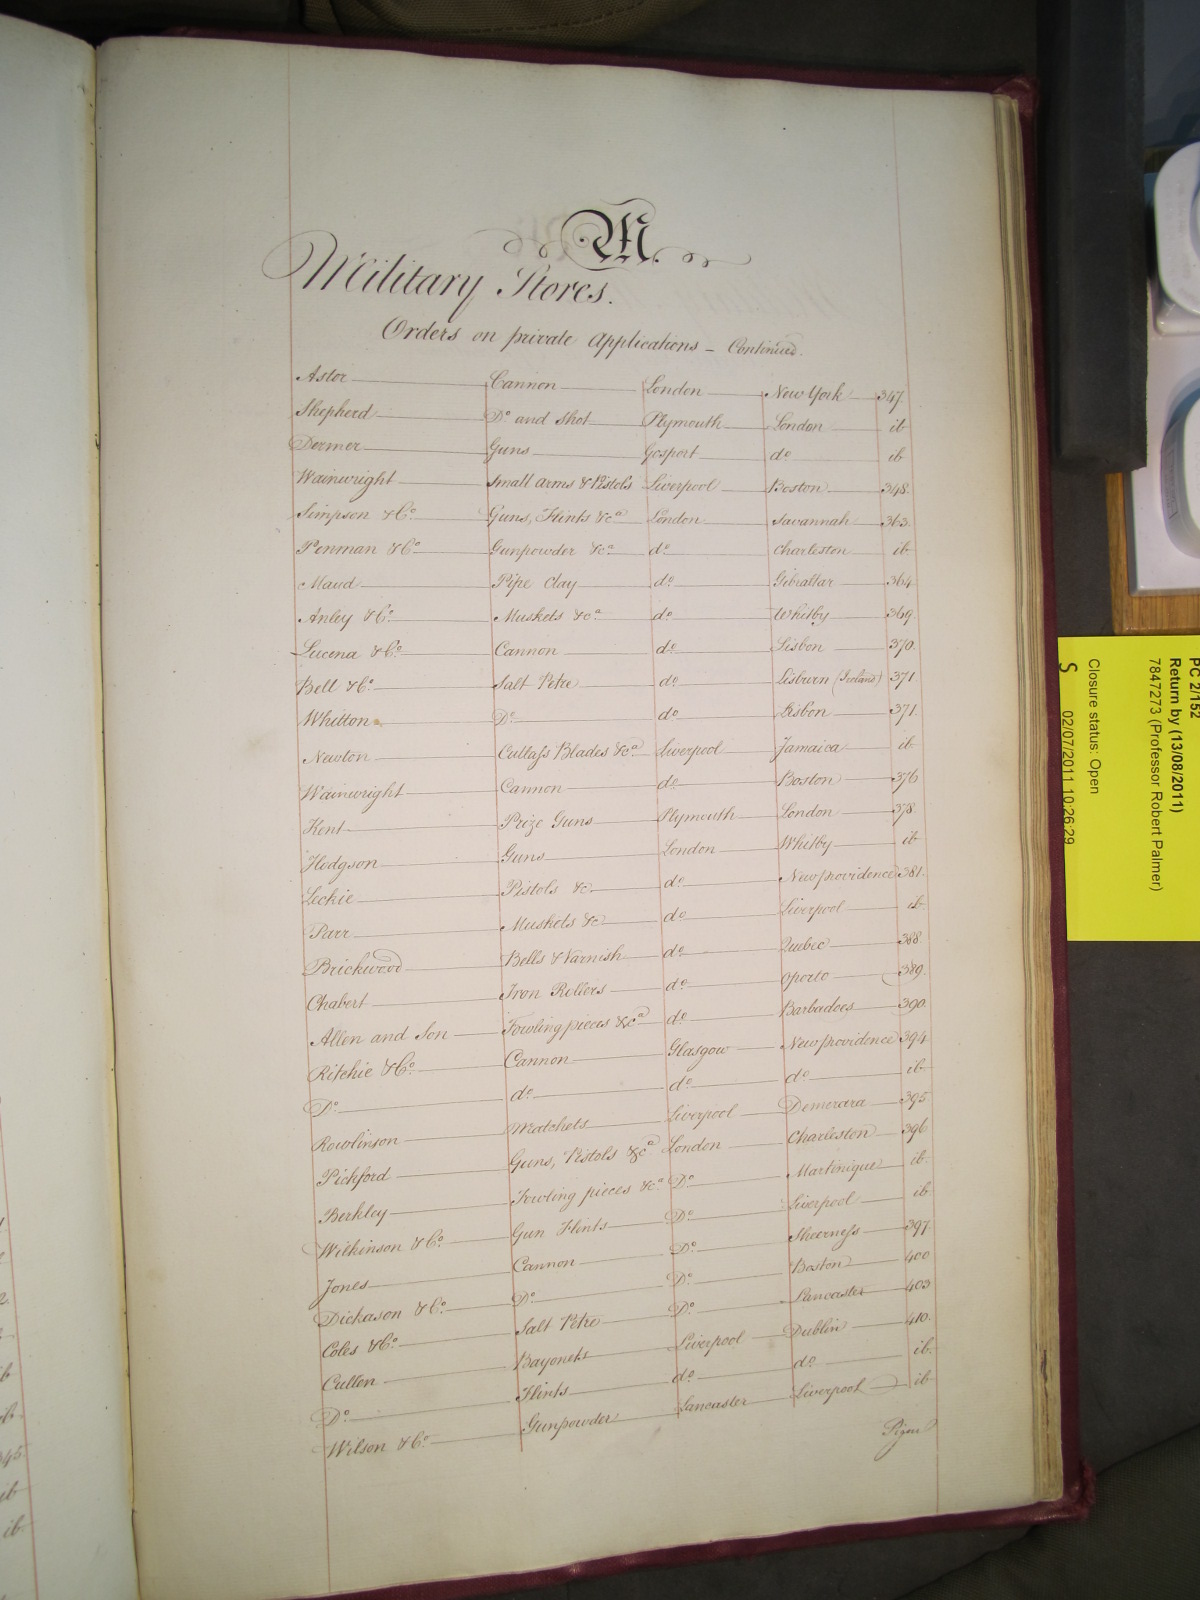 M.
Military Stores.
Orders on private Applications – Continued.
Astor Cannon London New York 347.
Shepherd Do. and Shot Plymouth London ib
Dermer Guns Gosport do ib
Wainwright Small arms & Pistols Liverpool Boston 348.
Simpson & Co. Guns, Flints &ca London Savannah 363.
Penman & Co. Gunpowder &ca. do. Charleston ib
Maud Pipe Clay do. Gibraltar 364
Anley & Co. Muskets &ca. do. Whitby 369.
Lucena & Co. Cannon do. Lisbon 370.
Bell & Co. Salt Petre do. Lisburn (Ireland) 371
Whitton Do. do. Lisbon 371.
Newton Cutlass Blades &ca Liverpool Jamaica ib.
Wainwright Cannon do. Boston 376
Kent Prize Guns Plymouth London 378.
Hodgson Guns London Whitby ib
Leckie Pistols &c. do. New providence 381.
Parr Muskets &c do. Liverpool ib
Brickwood Bells & Varnish do. Quebec 388.
Chabert Iron Rollers do. Oporto 389.
Allen and Son Fowling pieces &ca do. Barbadoes 390.
Ritchie & Co. Cannon Glasgow New providence 394
Do. do. do. do. ib
Rowlinson Matchets Liverpool Demerara 395
Pickford Guns, Pistols &ca London Charleston 396
Berkley Fowling pieces &ca. Do. Martinique ib.
Wilkinson & Co. Gun Flints Do. Liverpool ib
Jones Cannon Do. Sheerness 397
Dickason & Co. Do. Do. Boston 400
Coles & Co. Salt Petre Do. Lancaster 403
Cullen Bayonets Liverpool Dublin 410.
Do. Flints do. do. ib.
Wilson & Co. Gunpowder Lancaster Liverpool ib
PC 2/152
Return by (13/08/2011)
7847273 (Professor Robert Palmer)
Closure status: Open
S 02/07/2011 10:26:29